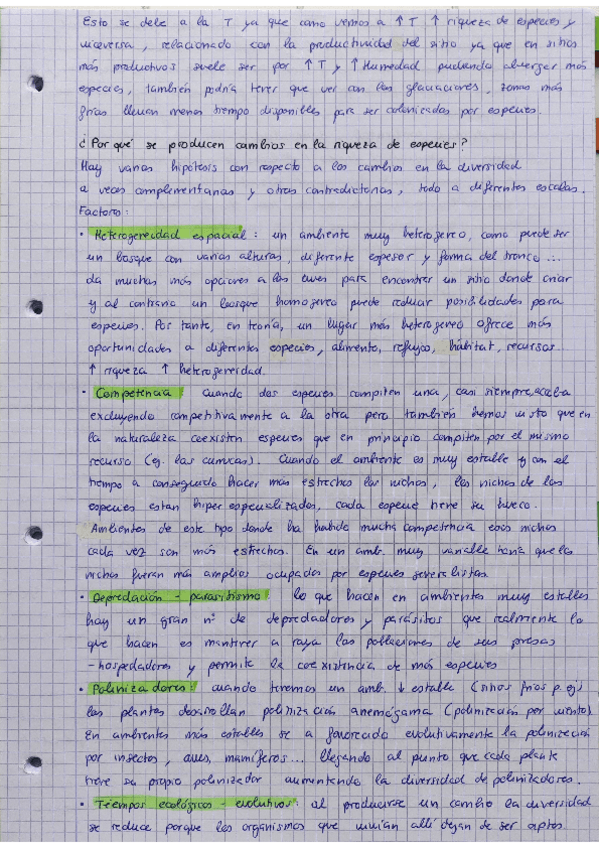 Esto se debe a la T ya que como vemos a ↑T ↑ riqueza de especies y
viceversa, relacionado con la productividad del sitio ya que en sitios
más productivos suele ser por ↑T y ↑Humedad pudiendo albergar más
especies, también podría tener que ver con las glaciaciones, zonas más
frías llevan menos tiempo disponibles para ser colonizadas por especies.
¿Por qué se producen cambios en la riqueza de especies?
Hay varias hipótesis con respecto a los cambios en la diversidad
a veces complementarias y otras contradictorias, todo a diferentes escalas.
Factores:
· Heterogeneidad espacial: un ambiente muy heterogéneo, como puede ser
un bosque con varias alturas, diferente espesor y forma del tronco...
da muchas más opciones a las aves para encontrar un sitio donde criar
y al contrario un bosque homogéneo puede reducir posibilidades para
especies. Por tanto, en teoría, un lugar más heterogéneo ofrece más
oportunidades a diferentes especies, alimento, refugios, hábitat, recursos...
↑ riqueza ↑ heterogeneidad.
· Competencia: Cuando dos especies compiten una, casi siempre, acaba
excluyendo competitivamente a la otra pero también hemos visto que en
la naturaleza coexisten especies que en principio compiten por el mismo
recurso (ej. las currucas). Cuando el ambiente es muy estable y con el
tiempo a conseguido hacer más estrechos los nichos, los nichos de las
especies estan hiper especializados, cada especie tiene su hueco.
Ambientes de este tipo donde ha habido mucha competencia esos nichos
cada vez son más estrechos. En un amb. muy variable haría que los
nichos fueran más amplios ocupados por especies generalistas.
· Depredación - parasitismo: lo que hacen en ambientes muy estables
hay un gran nº de depredadores y parásitos que realmente lo
que hacen es mantener a raya las poblaciones de sus presas
-hospedadores y permite la coexistencia de más especies
· Polinizadores: cuando tenemos un amb. ↓ estable (sitios fríos p.ej)
las plantas desarrollan polinización anemógama (polinización por viento)
En ambientes más estables se a favorecido evolutivamente la polinización
por insectos, aves, mamíferos... llegando al punto que cada planta
tiene su propio polinizador aumentando la diversidad de polinizadores.
· Tiempos ecológicos - evolutivos: al producirse un cambio la diversidad
se reduce porque los organismos que vivían allí dejan de ser aptos.